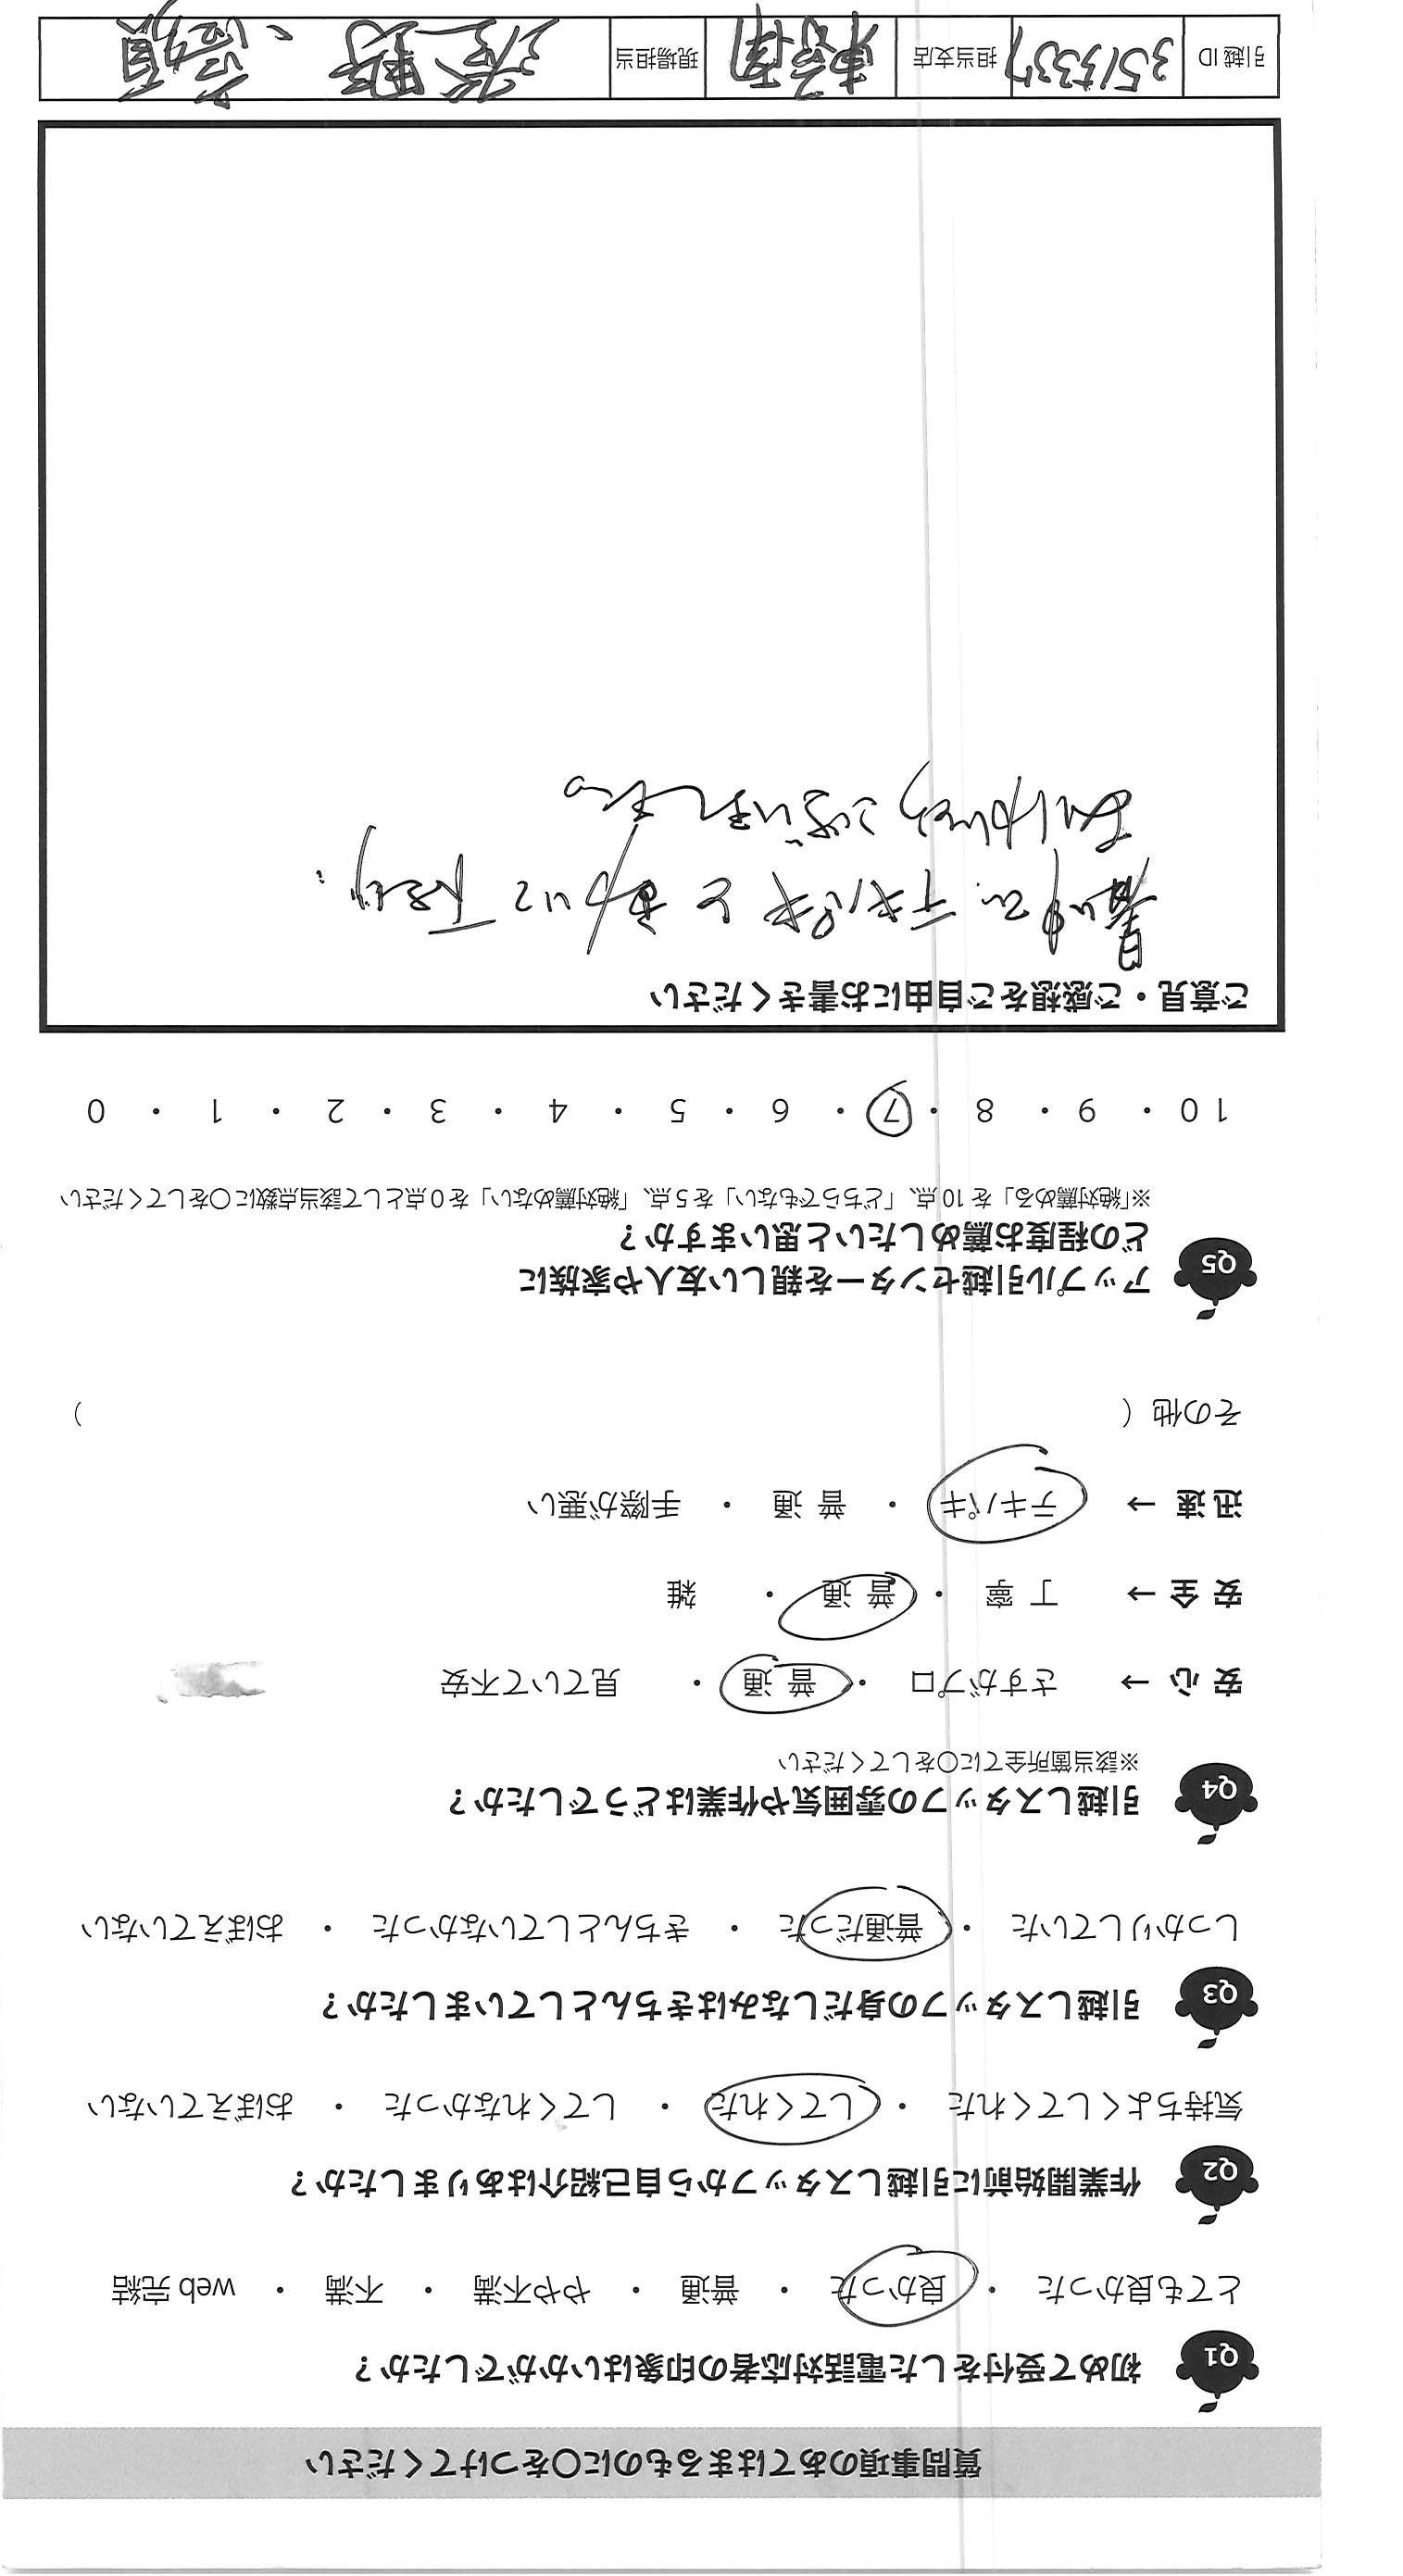 質問事項のあてはまるものに〇をつけてください
Q1 初めて受付をした電話対応者の印象はいかがでしたか？
とても良かった ・ 良かった ・ 普通 ・ やや不満 ・ 不満 ・ web 完結
Q2 作業開始前に引越しスタッフから自己紹介はありましたか？
気持ちよくしてくれた ・ してくれた ・ してくれなかった ・ おぼえていない
Q3 引越しスタッフの身だしなみはきちんとしていましたか？
しっかりしていた ・ 普通だった ・ きちんとしていなかった ・ おぼえていない
Q4 引越しスタッフの雰囲気や作業はどうでしたか？
※該当箇所全てに〇をしてください
安心 → さすがプロ ・ 普通 ・ 見ていて不安
安全 → 丁寧 ・ 普通 ・ 雑
迅速 → テキパキ ・ 普通 ・ 手際が悪い
その他（ ）
Q5 アップル引越センターを親しい友人や家族に
どの程度お薦めしたいと思いますか？
※「絶対薦める」を 10 点、「どちらでもない」を 5 点、「絶対薦めない」を 0 点として該当点数に〇をしてください
10 ・ 9 ・ 8 ・ 7 ・ 6 ・ 5 ・ 4 ・ 3 ・ 2 ・ 1 ・ 0
ご意見・ご感想をご自由にお書きください
暑い中、テキパキと動いて下さり、
ありがとうございました。
引越 ID 3515337 担当支店 現場担当